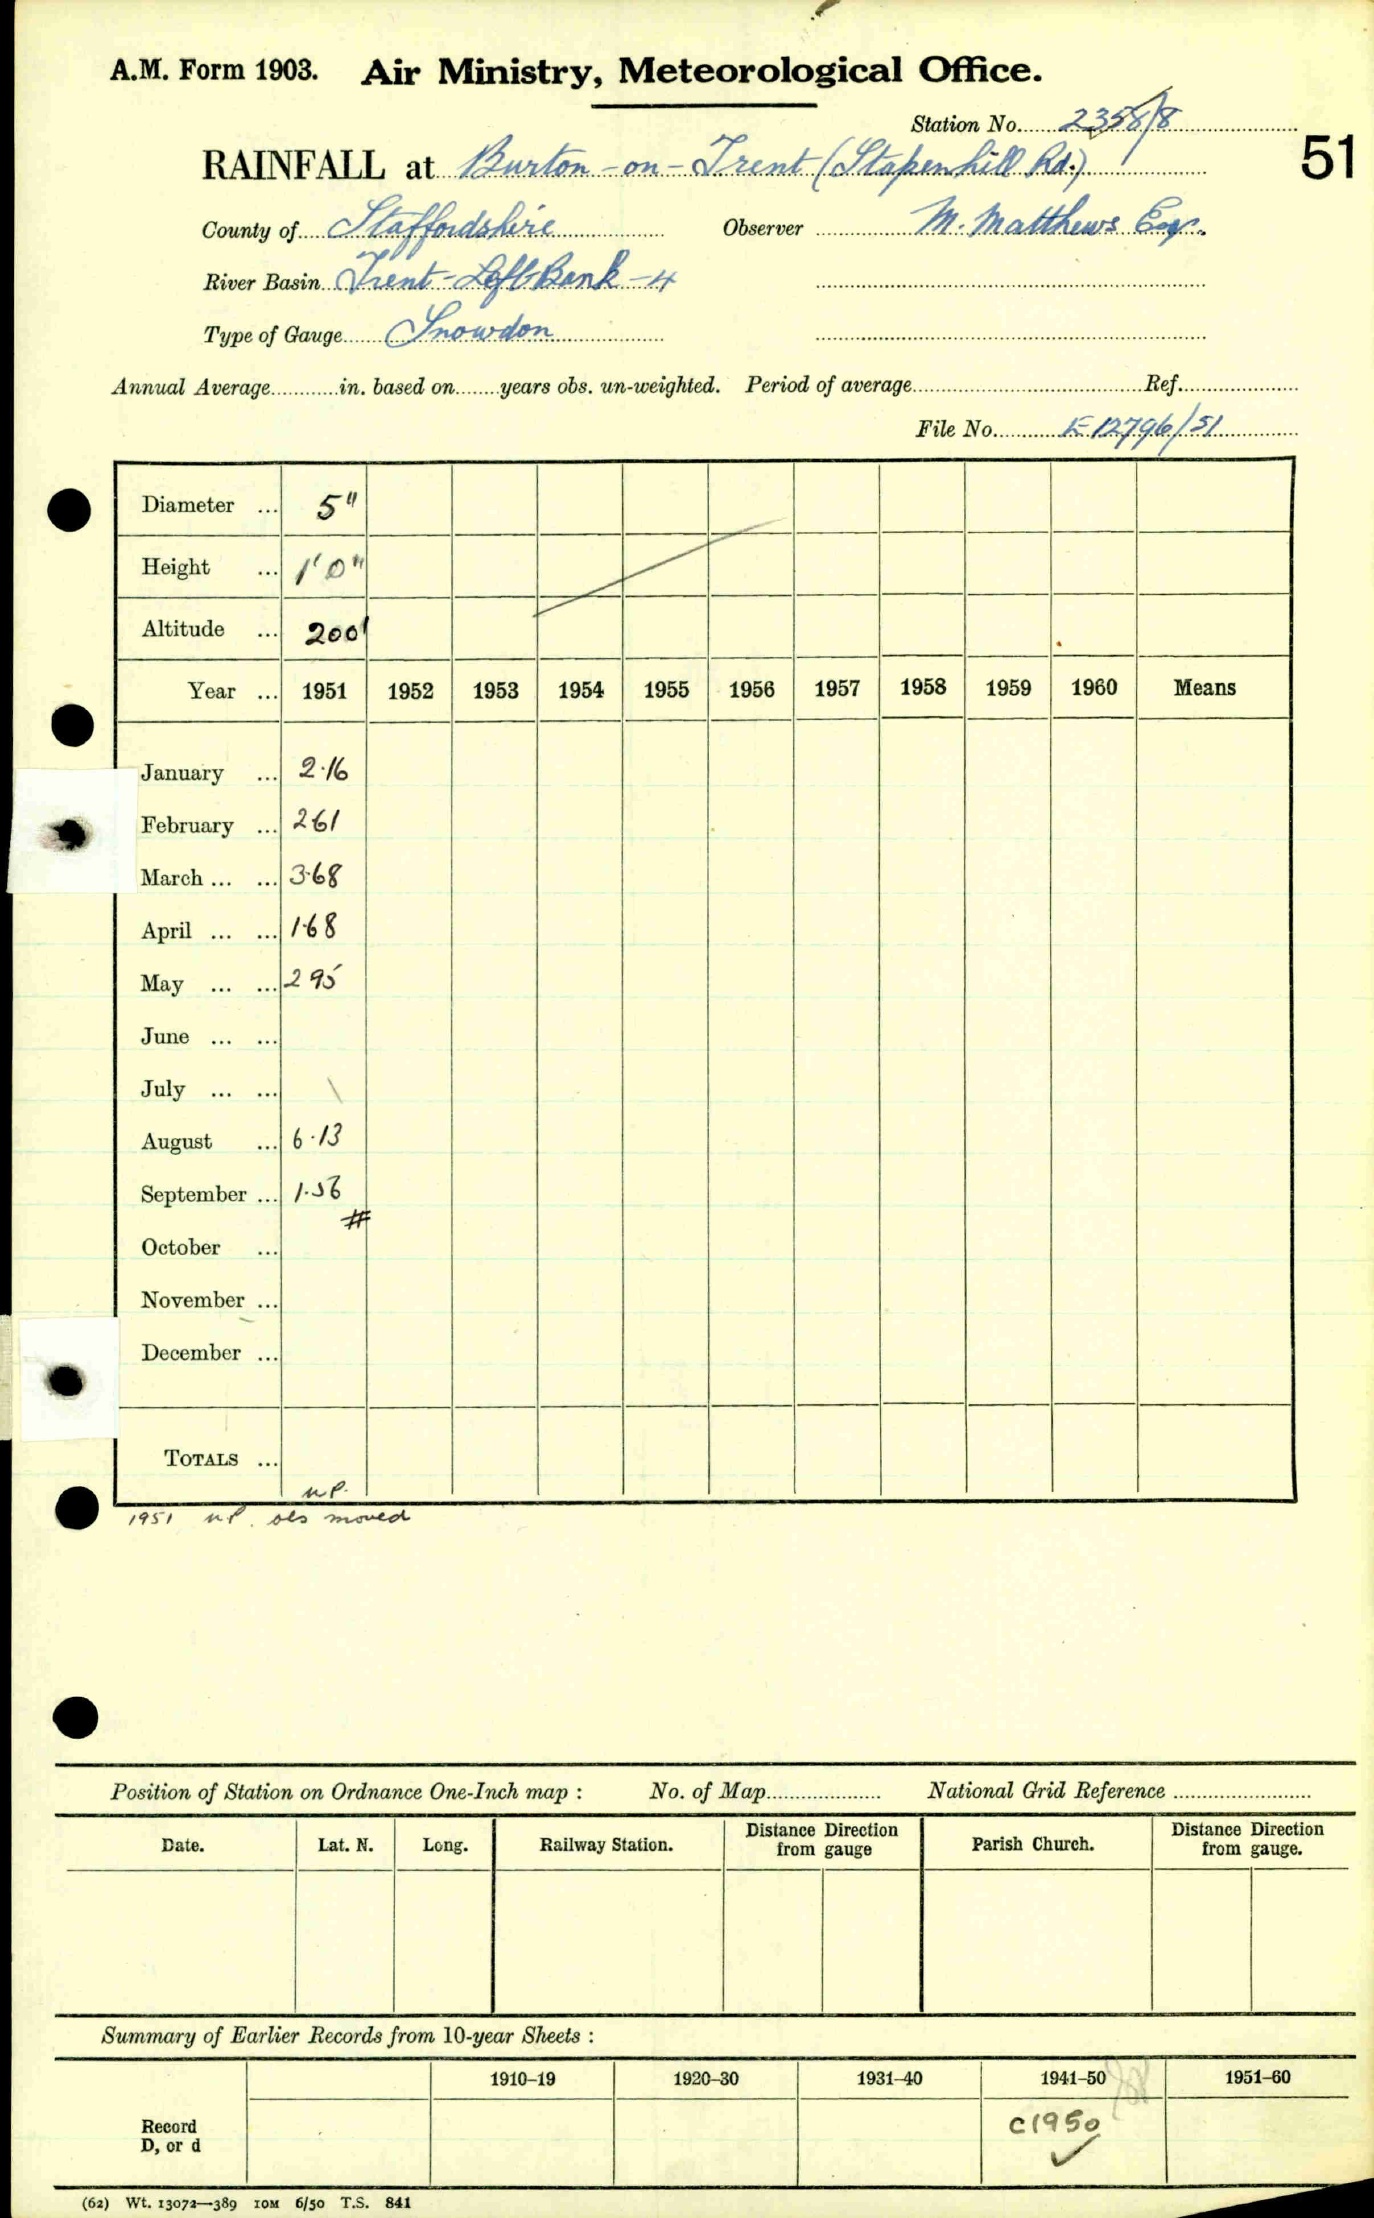 A.M. Form 1903. Air Ministry, Meteorological Office.
Station No. 2358/8
51
RAINFALL at Burton-on-Trent (Stapenhill Rd.)
County of Staffordshire Observer M. Matthews Esq.
River Basin Trent-Left Bank-4
Type of Gauge Snowdon
Annual Average............in. based on.......years obs. un-weighted. Period of average.......................Ref.............
File No. E 12796/51
Diameter ... 5"
Height ... 1'0"
Altitude ... 200'
Year ... 1951 1952 1953 1954 1955 1956 1957 1958 1959 1960 Means
January ... 2·16
February ... 2 61
March ... ... 3·68
April ... ... 1·68
May ... ... 2 95
June ... ...
July ... ... \
August ... 6·13
September ... 1·56
#
October ...
November ...
December ...
TOTALS ...
n.P.
1951 n.P. obs moved
Position of Station on Ordnance One-Inch map : No. of Map.................... National Grid Reference ........................
Date. Lat. N. Long. Railway Station. Distance Direction from gauge Parish Church. Distance Direction from gauge.
Summary of Earlier Records from 10-year Sheets :
1910–19 1920–30 1931–40 1941–50 1951–60
Record
D, or d
C1950
✓
(62) Wt. 13072—389 10M 6/50 T.S. 841